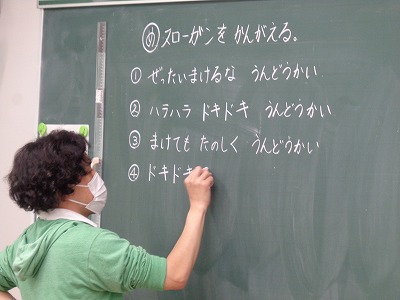 め スローガンを かんがえる。
① ぜったいまけるな うんどうかい
② ハラハラ ドキドキ うんどうかい
③ まけても たのしく うんどうかい
④ ドキドキ